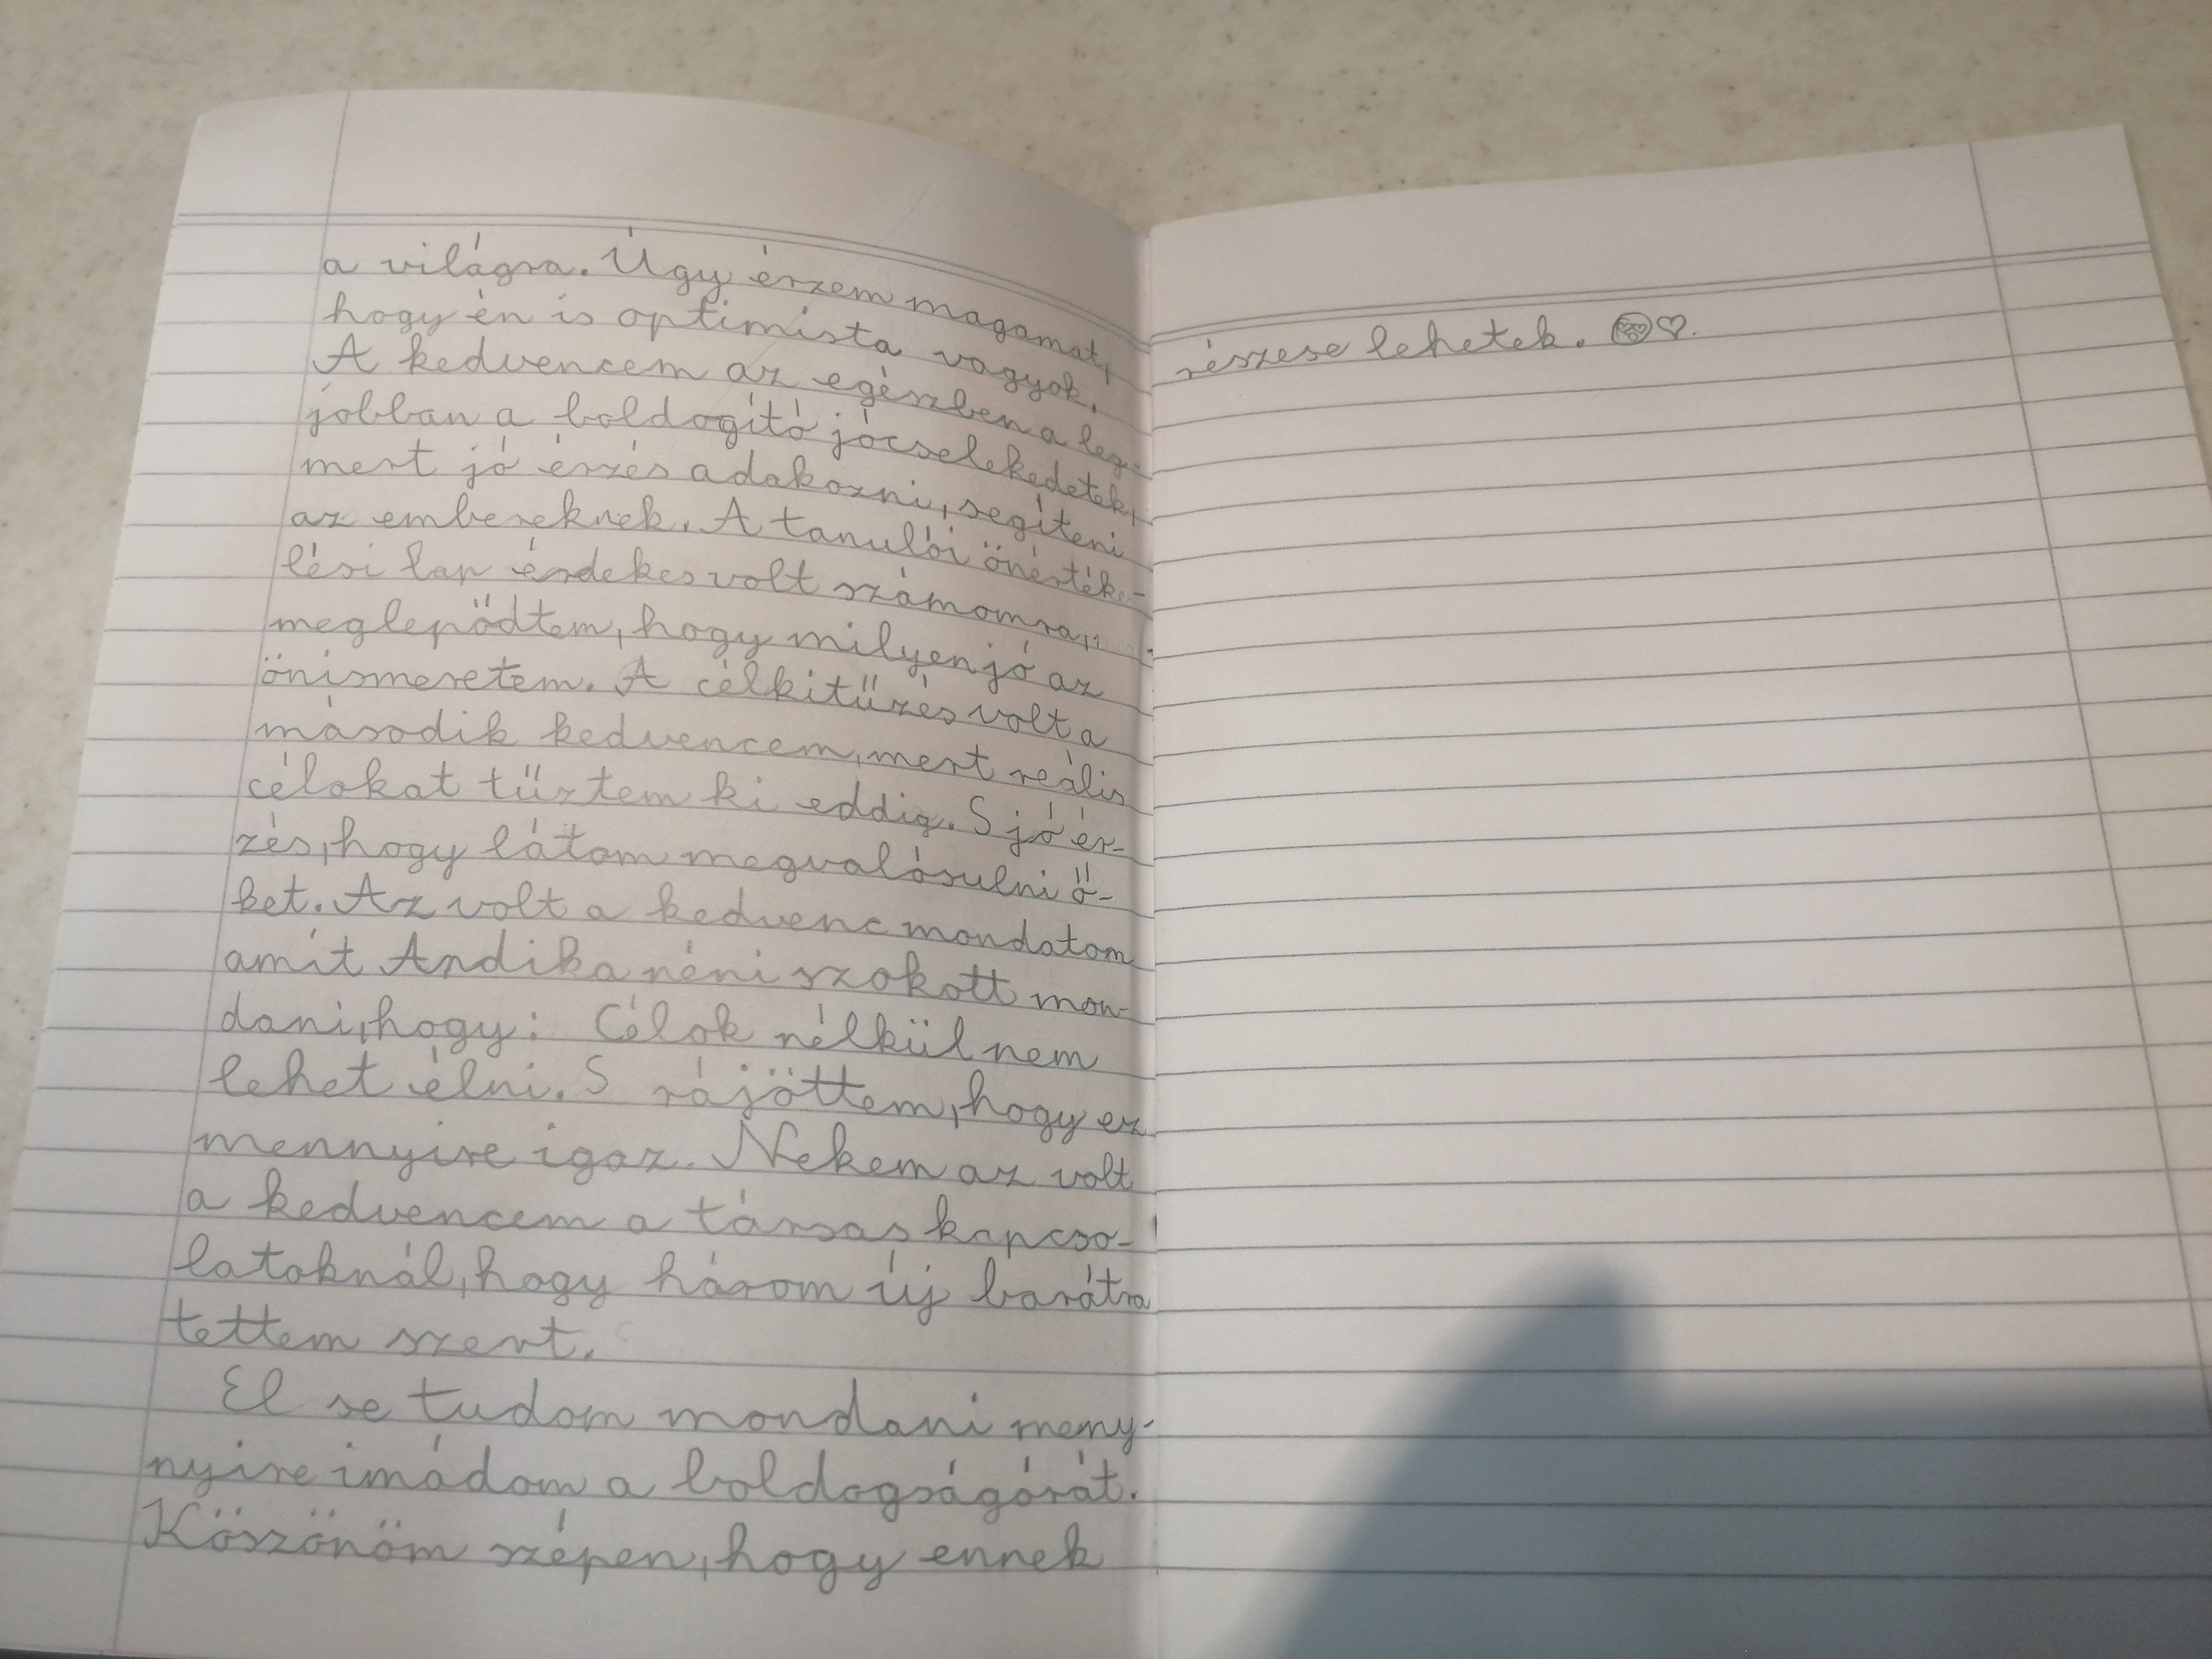 a világra. Úgy érzem magamat,
hogy én is optimista vagyok.
A kedvencem az egészben a leg-
jobban a boldogító jócselekedetek,
mert jó érzés adakozni, segíteni
az embereknek. A tanulói önértéke-
lési lap érdekes volt számomra,
meglepödtem, hogy milyen jó az
önismeretem. A célkitűzés volt a
második kedvencem, mert reális
célokat tűztem ki eddig. S jó ér-
zés, hogy látom megvalósulni ő-
ket. Az volt a kedvenc mondatom
amit Andika néni szokott mon-
dani, hogy: Célok nélkül nem
lehet élni. S rájöttem, hogy ez
mennyire igaz. Nekem az volt
a kedvencem a társas kapcso-
latoknál, hogy három új barátra
tettem szert.
El se tudom mondani meny-
nyire imádom a boldogságórát.
Köszönöm szépen, hogy ennek
részese lehetek.